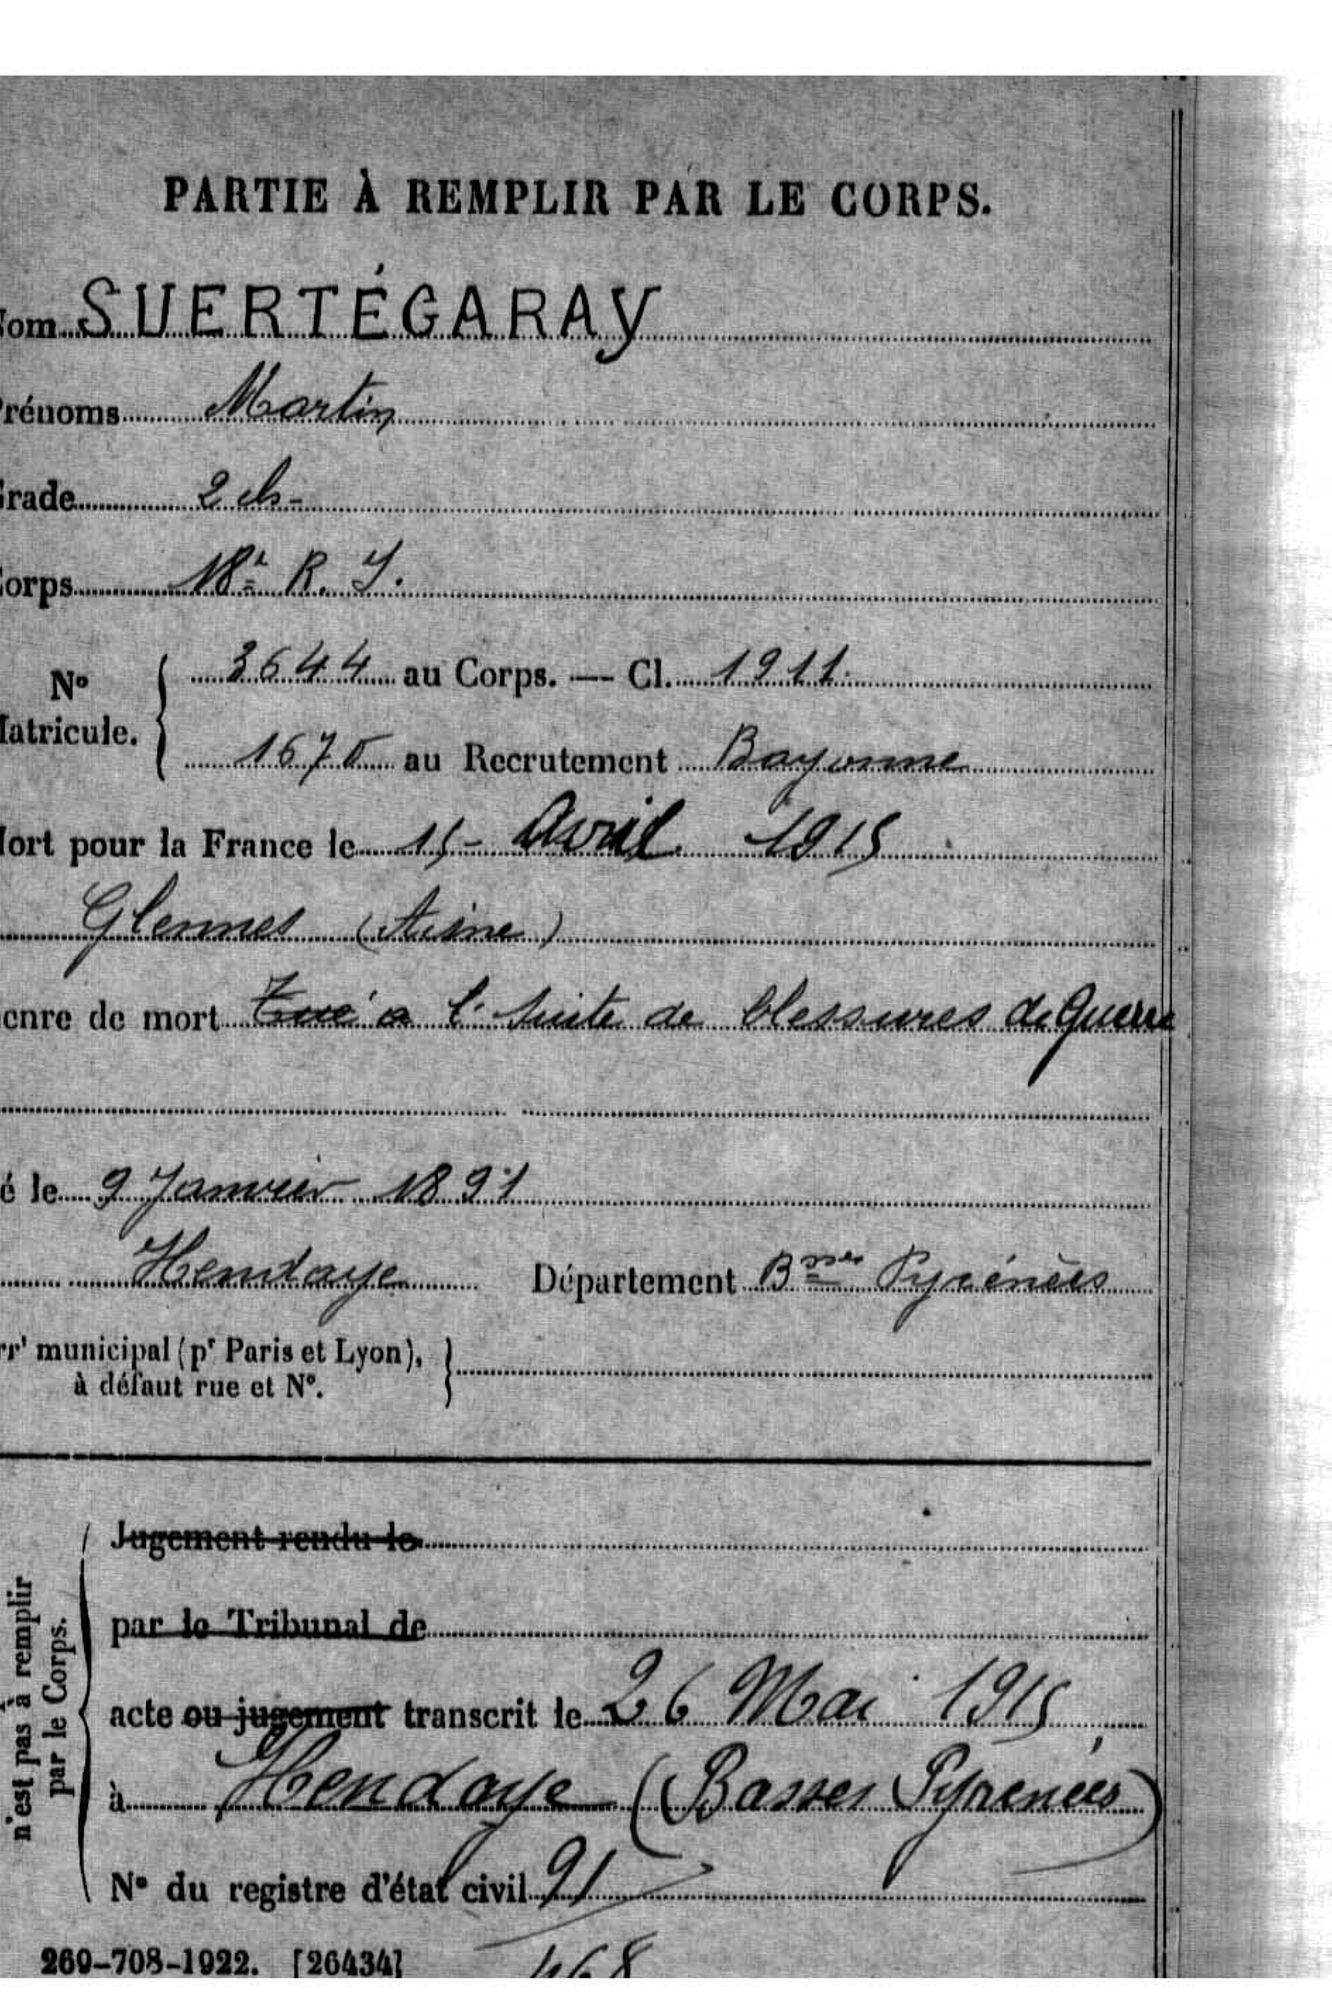 PARTIE À REMPLIR PAR LE CORPS.
Nom SUERTÉGARAY
Prénoms Martin
Grade 2 cls-
Corps 18e R. I.
N° Matricule.
3644 au Corps. — Cl. 1911.
1675 au Recrutement Bayonne
Mort pour la France le 15- Avril 1915
Glennes (Aisne)
Genre de mort Tué a l. suite de blessures de Guerre
é le 9 Janvier 1891
Hendaye Département Bsses Pyrénées
rrt municipal (pr Paris et Lyon),
à défaut rue et N°.
Jugement rendu le
par le Tribunal de
acte ou jugement transcrit le 26 Mai 1915
à Hendaye (Basses Pyrénées)
N° du registre d'état civil 91
n'est pas à remplir
par le Corps.
269-708-1922. [26434]
468